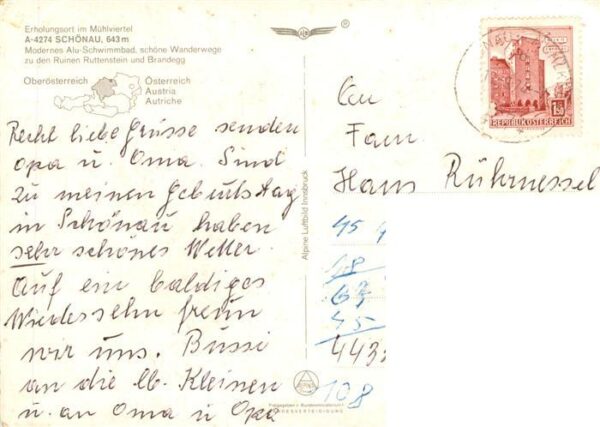 Erholungsort im Mühlviertel
A-4274 SCHÖNAU, 643 m
Modernes Alu-Schwimmbad, schöne Wanderwege
zu den Ruinen Ruttenstein und Brandegg
Oberösterreich
Österreich
Austria
Autriche
Recht liebe Grüsse senden
opa u. Oma. Sind
zu meinen Geburtstag
in Schönau haben
sehr schönes Wetter.
Auf ein baldiges
Wiedessehn freun
wir uns. Bussi
an die lb. Kleinen
u. an Oma u Opa
Alpine Luftbild Innsbruck
®
1.50
REPUBLIK ÖSTERREICH
An
Fam.
Hans
45 4
18
67
45
443
108